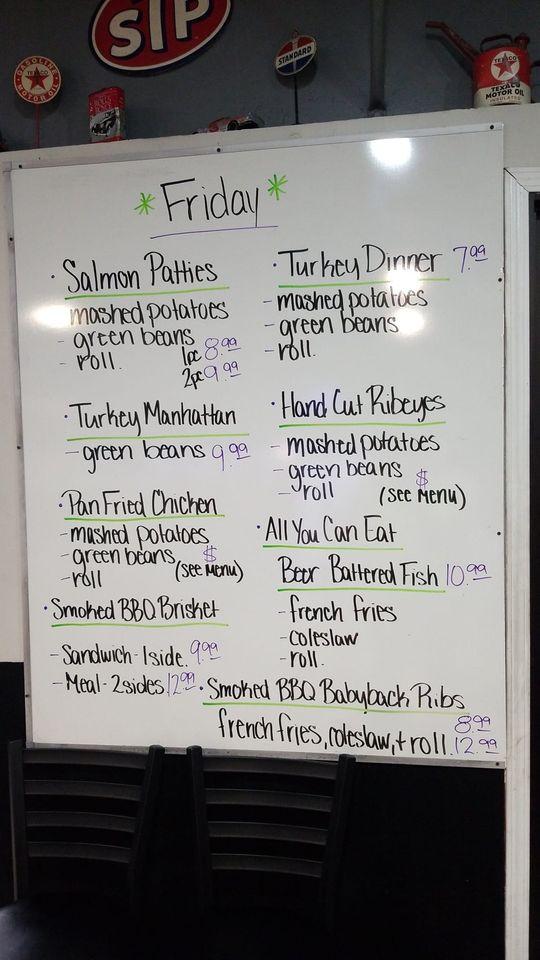 SIP
GASOLINE
TEXACO
MOTOR OIL
STANDARD
TEXACO
MOTOR OIL
INSULATED
* Friday *
· Salmon Patties
mashed potatoes
- green beans
- roll.
1pc 8.99
2pc 9.99
· Turkey Manhattan
- green beans 9.99
· Pan Fried Chicken
- mashed potatoes
- green beans $
- roll (see Menu)
· Smoked BBQ Brisket
- Sandwich - 1 side. 9.99
- Meal - 2 sides 12.99
· Turkey Dinner 7.99
- mashed potatoes
- green beans
- roll.
· Hand Cut Ribeyes
- mashed potatoes
- green beans $
- roll (see Menu)
· All You Can Eat
Beer Battered Fish 10.99
- french fries
- coleslaw
- roll.
· Smoked BBQ Babyback Ribs
8.99
french fries, coleslaw, + roll. 12.99